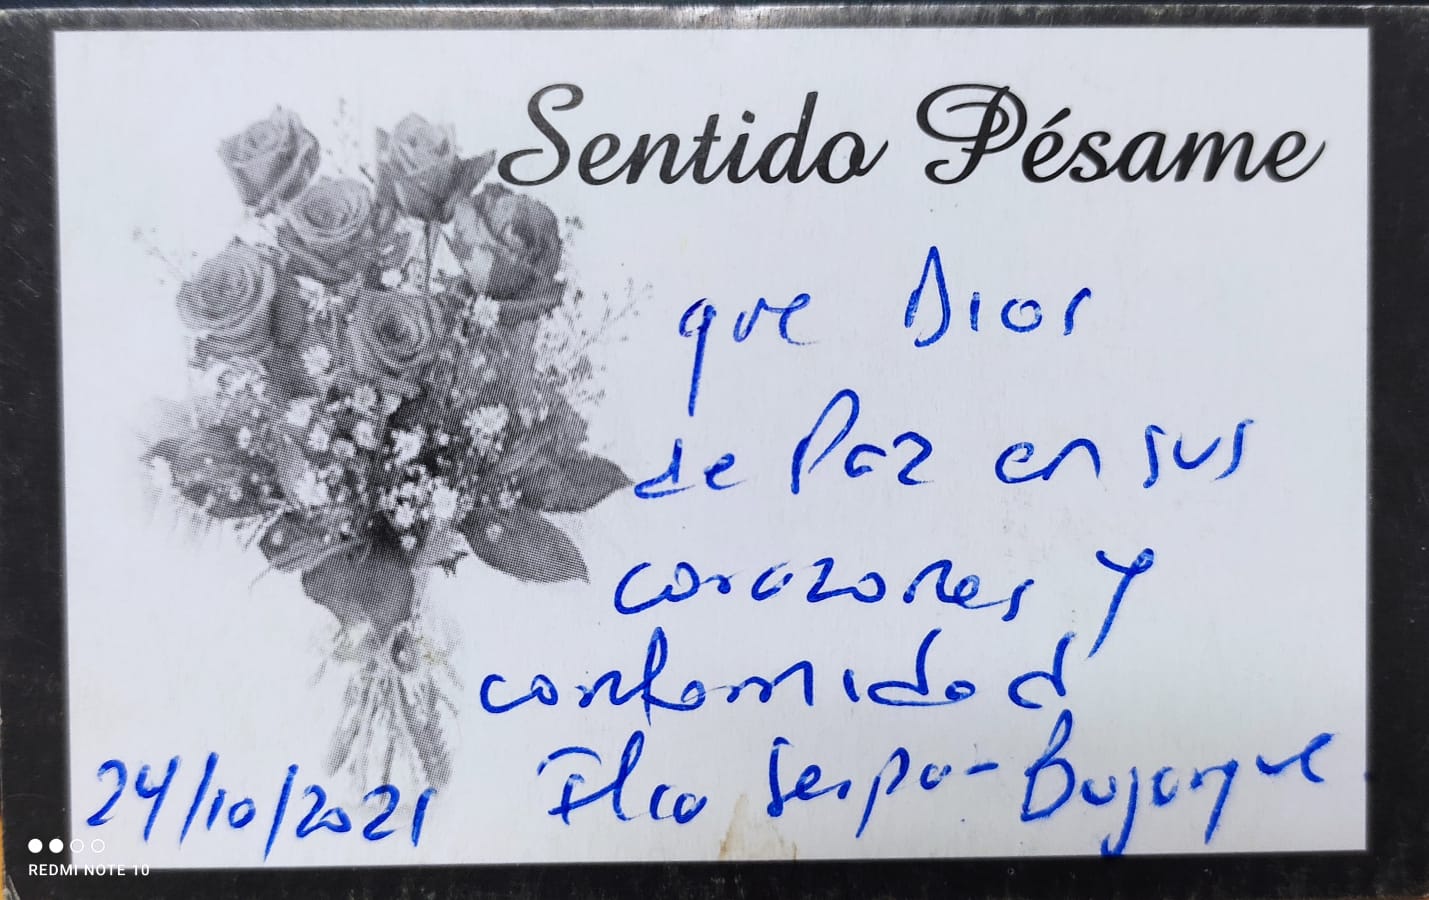 Sentido Pésame
que Dios
de Paz en sus
corazones y
conformidad
24/10/2021
REDMI NOTE 10